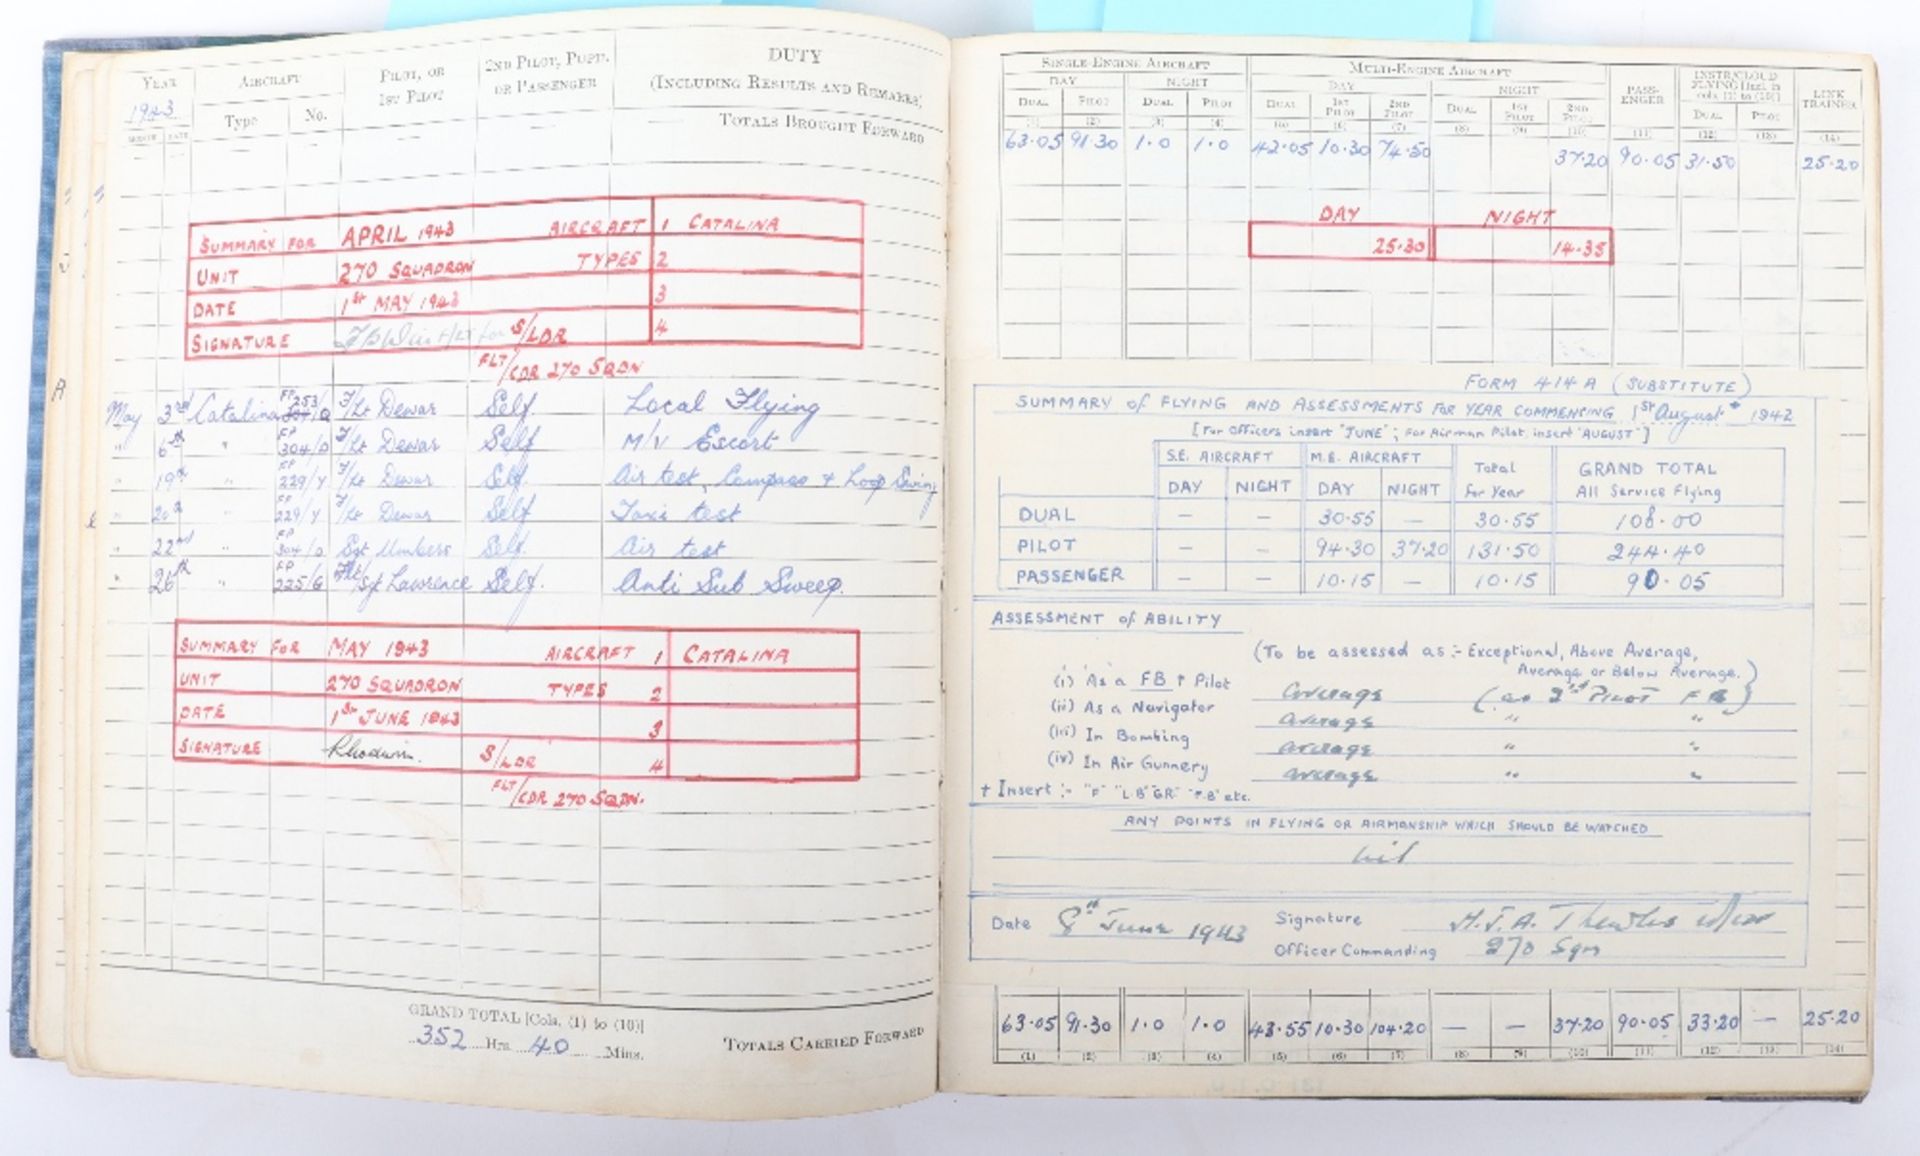 YEAR AIRCRAFT PILOT, OR 1ST PILOT 2ND PILOT, PUPIL OR PASSENGER DUTY (INCLUDING RESULTS AND REMARKS)
1943 Type No.
MONTH DATE
TOTALS BROUGHT FORWARD
SUMMARY FOR APRIL 1943 AIRCRAFT 1 CATALINA
UNIT 270 SQUADRON TYPES 2
DATE 1ST MAY 1943 3
SIGNATURE F/Lt for S/LDR 4
FLT/CDR 270 SQDN
May 3rd Catalina FP 253/Q F/Lt Dewar Self. Local Flying
" 6th " FP 304/O F/Lt Dewar Self. M/V Escort
" 19th " FP 229/Y F/Lt Dewar Self. Air test, Compass + Loop Swing
" 20th " FP 229/Y F/Lt Dewar Self Taxi test
" 22nd " FP 304/O Sgt Umbers Self. Air test
" 26th " FP 225/G Flt/Sgt Lawrence Self. Anti Sub Sweep.
SUMMARY FOR MAY 1943 AIRCRAFT 1 CATALINA
UNIT 270 SQUADRON TYPES 2
DATE 1ST JUNE 1943 3
SIGNATURE S/LDR 4
FLT/CDR 270 SQDN.
GRAND TOTAL [Cols. (1) to (10)]
352 Hrs. 40 Mins.
TOTALS CARRIED FORWARD
SINGLE-ENGINE AIRCRAFT MULTI-ENGINE AIRCRAFT PASS-ENGER INSTR/CLOUD FLYING [Incl. in cols. (1) to (10)] LINK TRAINER
DAY NIGHT DAY NIGHT
DUAL PILOT DUAL PILOT DUAL 1ST PILOT 2ND PILOT DUAL 1ST PILOT 2ND PILOT DUAL PILOT
(1) (2) (3) (4) (5) (6) (7) (8) (9) (10) (11) (12) (13) (14)
63.05 91.30 1.0 1.0 42.05 10.30 74.50 37.20 90.05 31.50 25.20
DAY NIGHT
25.30 14.35
FORM 414A (SUBSTITUTE)
SUMMARY of FLYING AND ASSESSMENTS FOR YEAR COMMENCING 1st August * 1942
[For Officers insert "JUNE"; for Airman Pilot, insert "AUGUST"]
S.E. AIRCRAFT M.E. AIRCRAFT Total for Year GRAND TOTAL All Service Flying
DAY NIGHT DAY NIGHT
DUAL — — 30.55 — 30.55 108.00
PILOT — — 94.30 37.20 131.50 244.40
PASSENGER — — 10.15 — 10.15 90.05
ASSESSMENT of ABILITY
(To be assessed as :- Exceptional, Above Average,
Average or Below Average.)
(i) As a FB † Pilot average (as 2nd Pilot F B)
(ii) As a Navigator average " "
(iii) In Bombing average " "
(iv) In Air Gunnery average " "
† Insert :- "F" "L.B" "G.R" "F.B" etc.
ANY POINTS IN FLYING OR AIRMANSHIP WHICH SHOULD BE WATCHED
nil
Date 8th June 1943 Signature H. J. A.
Officer Commanding 270 Sqn
63.05 91.30 1.0 1.0 43.55 10.30 104.20 — — 37.20 90.05 33.20 — 25.20
(1) (2) (3) (4) (5) (6) (7) (8) (9) (10) (11) (12) (13) (14)